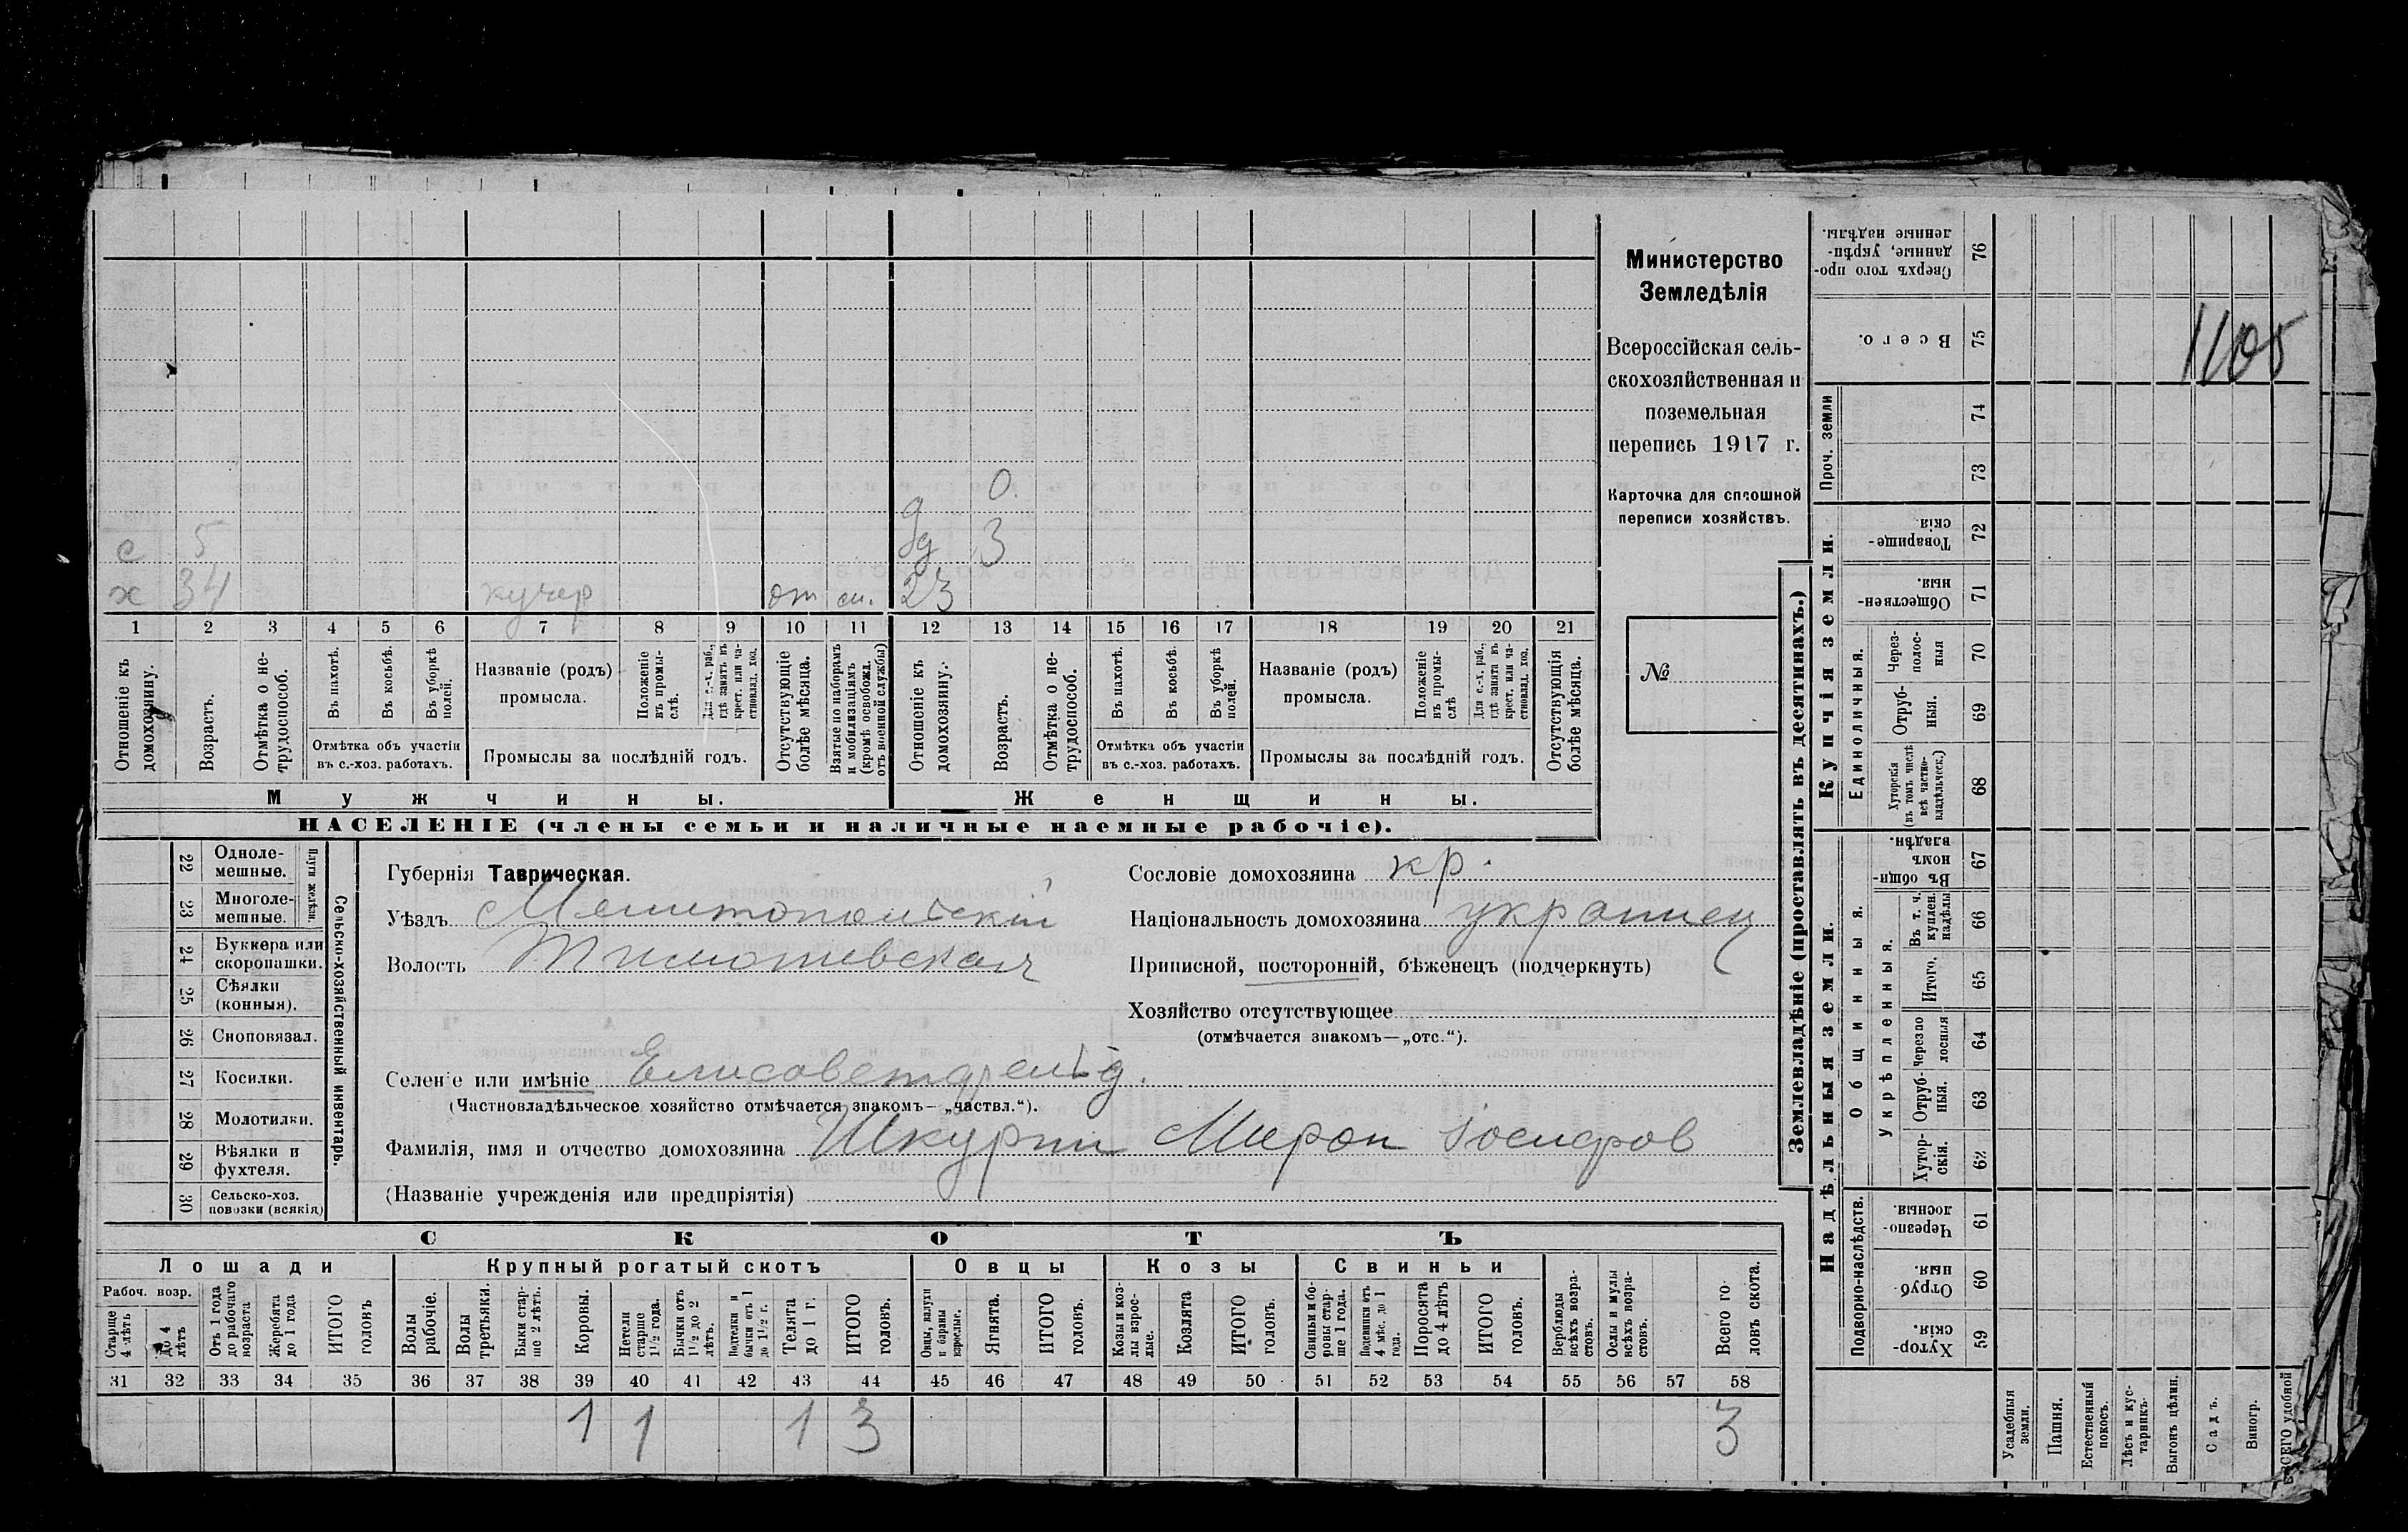 Министерство
Земледѣлія
Всероссійская сель-
скохозяйственная и
поземельная
перепись 1917 г.
Карточка для сплошной
переписи хозяйствъ.
№
0.
д
с 5 дд 3
х 34 кучер от сл. 23
1 2 3 4 5 6 7 8 9 10 11 12 13 14 15 16 17 18 19 20 21
Отношеніе къ домохозяину.
Возрастъ.
Отмѣтка о не-трудоспособ.
Въ пахотѣ.
Въ косьбѣ.
Въ уборкѣ полей.
Отмѣтка объ участіи
въ с.-хоз. работахъ.
Названіе (родъ)
промысла.
Положеніе въ промы-слѣ.
Для с.-х. раб., гдѣ занятъ въ крест. или ча-стновлад. хоз.
Промыслы за послѣдній годъ.
Отсутствующіе болѣе мѣсяца.
Взятые по наборамъ и мобилизаціямъ (кромѣ освобожд. отъ военной службы)
Отношеніе къ домохозяину.
Возрастъ.
Отмѣтка о не-трудоспособ.
Въ пахотѣ.
Въ косьбѣ.
Въ уборкѣ полей.
Отмѣтка объ участіи
въ с.-хоз. работахъ.
Названіе (родъ)
промысла.
Положеніе въ промы-слѣ
Для с.-х. раб., гдѣ занята въ крест. или ча-стновлад. хоз.
Промыслы за послѣдній годъ.
Отсутствующія болѣе мѣсяца.
Мужчины.
Женщины.
НАСЕЛЕНІЕ (члены семьи и наличные наемные рабочіе).
22 Одноле-мешные.
23 Многоле-мешные.
24 Буккера или скоропашки.
25 Сѣялки (конныя).
26 Сноповязал.
27 Косилки.
28 Молотилки.
29 Вѣялки и фухтеля.
30 Сельско-хоз. повозки (всякія)
Сельско-хозяйственный инвентарь.
Губернія Таврическая.
Уѣздъ Мелитопольскій
Волость Тимошевская
Селеніе или имѣніе Елисаветфельд.
(Частновладѣльческое хозяйство отмѣчается знакомъ—„частвл.“).
Фамилія, имя и отчество домохозяина Шкурпи Мирон Іосифов
(Названіе учрежденія или предпріятія)
Сословіе домохозяина кр.
Національность домохозяина украинец
Приписной, посторонній, бѣженецъ (подчеркнуть)
Хозяйство отсутствующее
(отмѣчается знакомъ—„отс.“).
СКОТЪ
Лошади
Крупный рогатый скотъ
Овцы
Козы
Свиньи
Рабоч. возр.
Старше 4 лѣтъ
до 4 лѣтъ
Отъ 1 года до рабочаго возраста
Жеребята до 1 года
ИТОГО головъ
Волы рабочіе.
Волы третьяки.
Быки стар-ше 2 лѣтъ.
Коровы.
Нетели старше 1½ года.
Бычки отъ 1½ до 2 лѣтъ.
Подтелки и бычки отъ 1 до 1½ г.
Телята до 1 г.
ИТОГО головъ.
Овцы, валухи и бараны взрослые.
Ягнята.
ИТОГО головъ.
Козы и коз-лы взрос-лые.
Козлята
ИТОГО головъ.
Свиньи и бо-ровы стар-ше 1 года.
Подсвинки отъ 4 мѣс. до 1 года.
Поросята до 4 лѣтъ
ИТОГО головъ.
Верблюды всѣхъ возра-стовъ.
Ослы и мулы всѣхъ возра-стовъ.
Всего го-ловъ скота.
31 32 33 34 35 36 37 38 39 40 41 42 43 44 45 46 47 48 49 50 51 52 53 54 55 56 57 58
1 1 1 3 3
Землевладѣніе (проставлять въ десятинахъ.)
Сверхъ того про-данные, укрѣп-ленные надѣлы. 76
Всего. 75
1105
Проч. земли
74
73
Купчія земли.
Товарище-скія 72
Обществен-ныя. 71
Единоличныя.
Через-полос-ныя 70
Отруб-ныя. 69
Хуторскія (въ томъ числѣ всѣ частно-владѣльческ.) 68
Надѣльныя земли.
Общинныя.
Въ общин-номъ владѣн. 67
Укрѣпленныя.
Въ т. ч. куплен. надѣлы 66
Итого. 65
Черезпо лосныя 64
Отруб-ныя. 63
Хутор-скія. 62
Подворно-наслѣдств.
Черезпо-лосныя. 61
Отруб-ныя. 60
Хутор-скія. 59
Усадебныя земли.
Пашня.
Естественный покосъ.
Лѣсъ и кус-тарникъ.
Выгонъ цѣлин.
Садъ.
Виногр.
ВСЕГО удобной